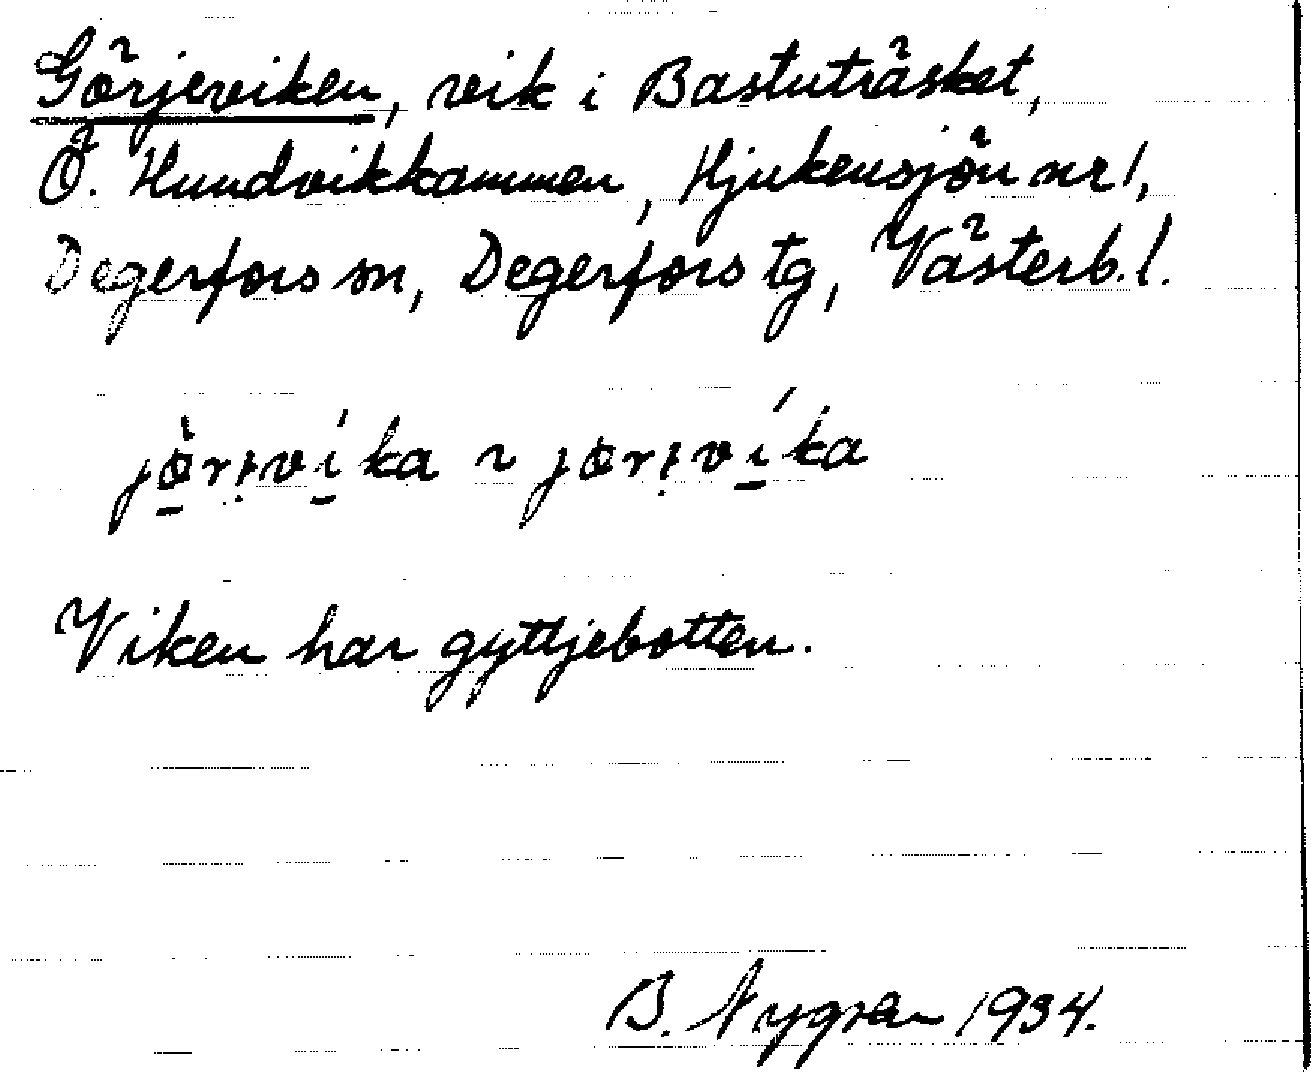 Görjeviken, vik i Bastuträsket,
Ö. Hundvikkammen, Hjukensjön nr 1,
Degerfors sn, Degerfors tg, Västerb. l.
jö̀rı̣vı́ka ~ jörı̣vı́ka
Viken har gyttjebotten.
B. Nygren 1934.